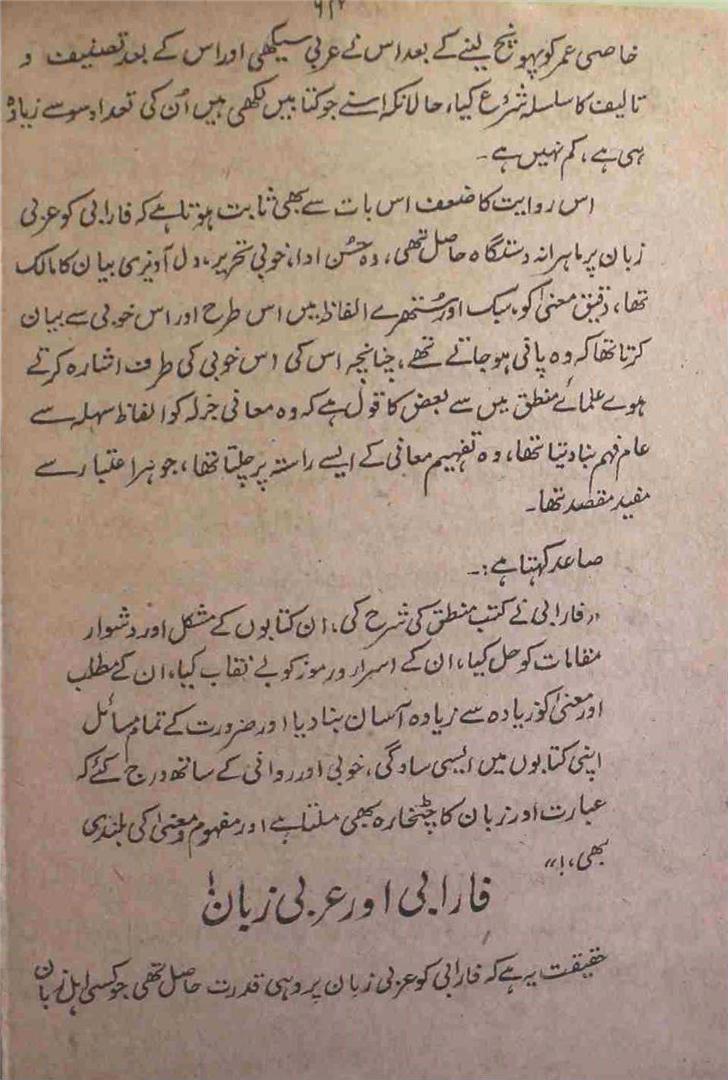 خاصی عمر کو پہونچ لینے کے بعد اس نے عربی سیکھی اور اس کے بعد تصنیف و
تالیف کا سلسلہ شروع کیا، حالانکہ اسنے جو کتابیں لکھی ہیں اُن کی تعداد سو سے زیادہ
ہی ہے، کم نہیں ہے۔
اس روایت کا ضعف اس بات سے بھی ثابت ہوتا ہے کہ فارابی کو عربی
زبان پر ماہرانہ دستگاہ حاصل تھی، وہ حُسن ادا، خوبی تحریر، دل آویزی بیان کا مالک
تھا، دقیق معنیٰ کو، سبک اور سُتھرے الفاظ میں اس طرح اور اس خوبی سے بیان
کرتا تھا کہ وہ پانی ہو جاتے تھے، چنانچہ اس کی اس خوبی کی طرف اشارہ کرتے
ہوے علمائے منطق میں سے بعض کا قول ہے کہ وہ معانی جزلہ کو الفاظ سہلہ سے
عام فہم بنا دیتا تھا، وہ تفہیم معانی کے ایسے راستہ پر چلتا تھا، جو ہر اعتبار سے
مفید مقصد تھا۔
صاعد کہتا ہے:۔
”فارابی نے کتب منطق کی شرح کی، ان کتابوں کے مشکل اور دشوار
مقامات کو حل کیا، ان کے اسرار و رموز کو بے نقاب کیا، ان کے مطلب
اور معنیٰ کو زیادہ سے زیادہ آسان بنا دیا اور ضرورت کے تمام مسائل
اپنی کتابوں میں ایسی سادگی، خوبی اور روانی کے ساتھ درج کئے کہ
عبارت اور زبان کا چٹخارہ بھی ملتا ہے اور مفہوم و معنیٰ کی بلندی
بھی،!“
فارابی اور عربی زبان!
حقیقت یہ ہے کہ فارابی کو عربی زبان پر وہی قدرت حاصل تھی جو کسی اہل زبان